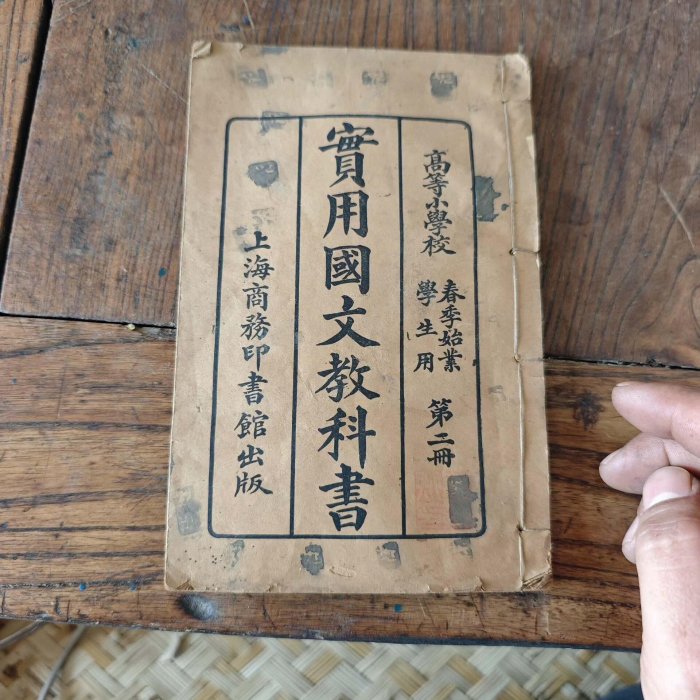 高等小學校 春季始業 學生用 第二冊
實用國文教科書
上海商務印書館出版